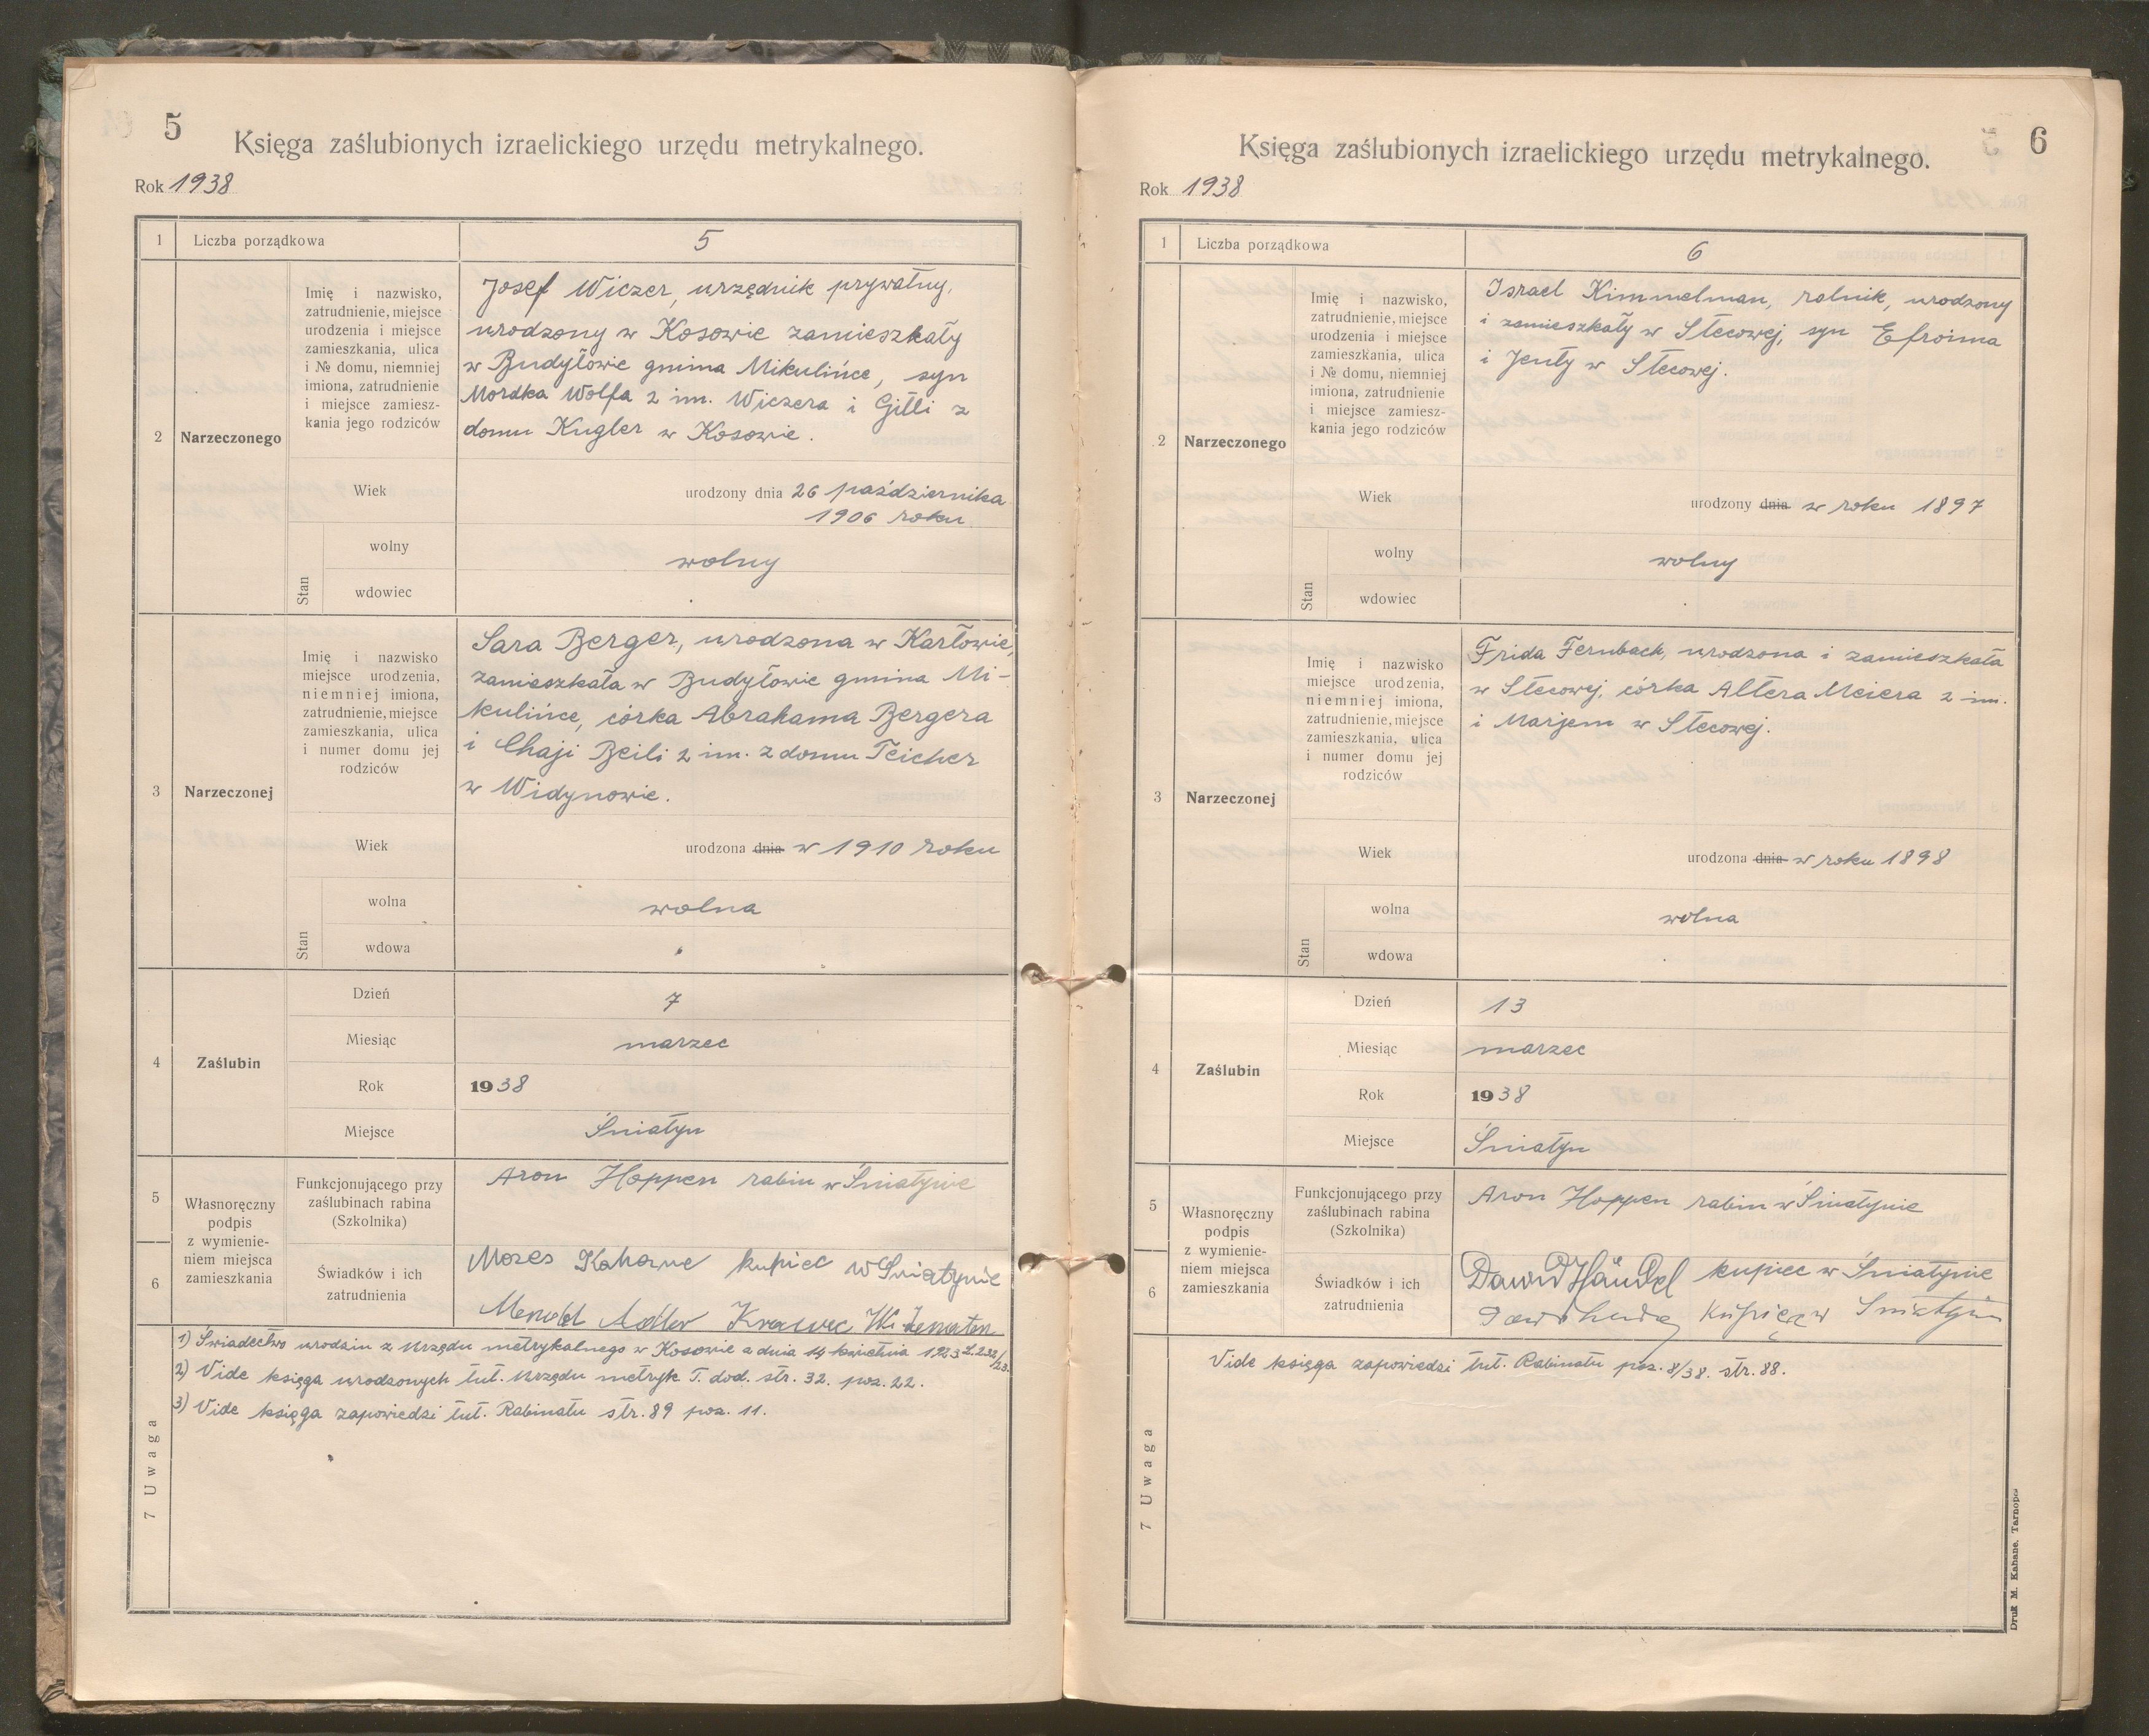 5
Księga zaślubionych izraelickiego urzędu metrykalnego.
Rok 1938
1 Liczba porządkowa 5
2 Narzeczonego
Imię i nazwisko,
zatrudnienie, miejsce
urodzenia i miejsce
zamieszkania, ulica
i № domu, niemniej
imiona, zatrudnienie
i miejsce zamiesz-
kania jego rodziców
Josef Wiczer, urzędnik prywatny,
urodzony w Kosowie zamieszkały
w Budyłowie gmina Mikulińce, syn
Mordka Wolfa 2 im. Wiczera i Gitli z
domu Kugler w Kosowie.
Wiek urodzony dnia 26 października
1906 roku
Stan
wolny wolny
wdowiec
3 Narzeczonej
Imię i nazwisko
miejsce urodzenia,
niemniej imiona,
zatrudnienie, miejsce
zamieszkania, ulica
i numer domu jej
rodziców
Sara Berger, urodzona w Karłowie,
zamieszkała w Budyłowie gmina Mi-
kulińce, córka Abrahama Bergera
i Chaji Beili 2 im. z domu Teicher
w Widynowie.
Wiek urodzona dnia w 1910 roku
Stan
wolna wolna
wdowa
4 Zaślubin
Dzień 7
Miesiąc marzec
Rok 1938
Miejsce Śniatyn
5
6
Własnoręczny
podpis
z wymienie-
niem miejsca
zamieszkania
Funkcjonującego przy
zaślubinach rabina
(Szkolnika)
Aron Hoppen rabin w Śniatynie
Świadków i ich
zatrudnienia
Mozes Kahane kupiec w Śniatynie
Mendel Adler Krawec
7 Uwaga
1) Świadectwo urodzin z Urzędu metrykalnego w Kosowie z dnia 14 kwietnia 1923 L. 232/23.
2) Vide księga urodzonych tut. Urzędu metryk T. dod. str. 32. poz. 22.
3) Vide księga zapowiedzi tut. Rabinatu str. 89 poz. 11.
6
Księga zaślubionych izraelickiego urzędu metrykalnego.
Rok 1938
1 Liczba porządkowa 6
2 Narzeczonego
Imię i nazwisko,
zatrudnienie, miejsce
urodzenia i miejsce
zamieszkania, ulica
i № domu, niemniej
imiona, zatrudnienie
i miejsce zamiesz-
kania jego rodziców
Israel Kimmelman, rolnik, urodzony
i zamieszkały w Stecowej, syn Efroima
i Jenty w Stecowej.
Wiek urodzony dnia w roku 1897
Stan
wolny wolny
wdowiec
3 Narzeczonej
Imię i nazwisko
miejsce urodzenia,
niemniej imiona,
zatrudnienie, miejsce
zamieszkania, ulica
i numer domu jej
rodziców
Frida Fernbach, urodzona i zamieszkała
w Stecowej, córka Altera Meiera 2 im.
i Marjem w Stecowej.
Wiek urodzona dnia w roku 1898
Stan
wolna wolna
wdowa
4 Zaślubin
Dzień 13
Miesiąc marzec
Rok 1938
Miejsce Śniatyn
5
6
Własnoręczny
podpis
z wymienie-
niem miejsca
zamieszkania
Funkcjonującego przy
zaślubinach rabina
(Szkolnika)
Aron Hoppen rabin w Śniatynie
Świadków i ich
zatrudnienia
Dawid Händel kupiec w Śniatynie
Kupiec w Śniatyn
7 Uwaga
Vide księga zapowiedzi tut. Rabinatu poz. 8/38. str. 88.
Druk M. Kahane, Tarnopol